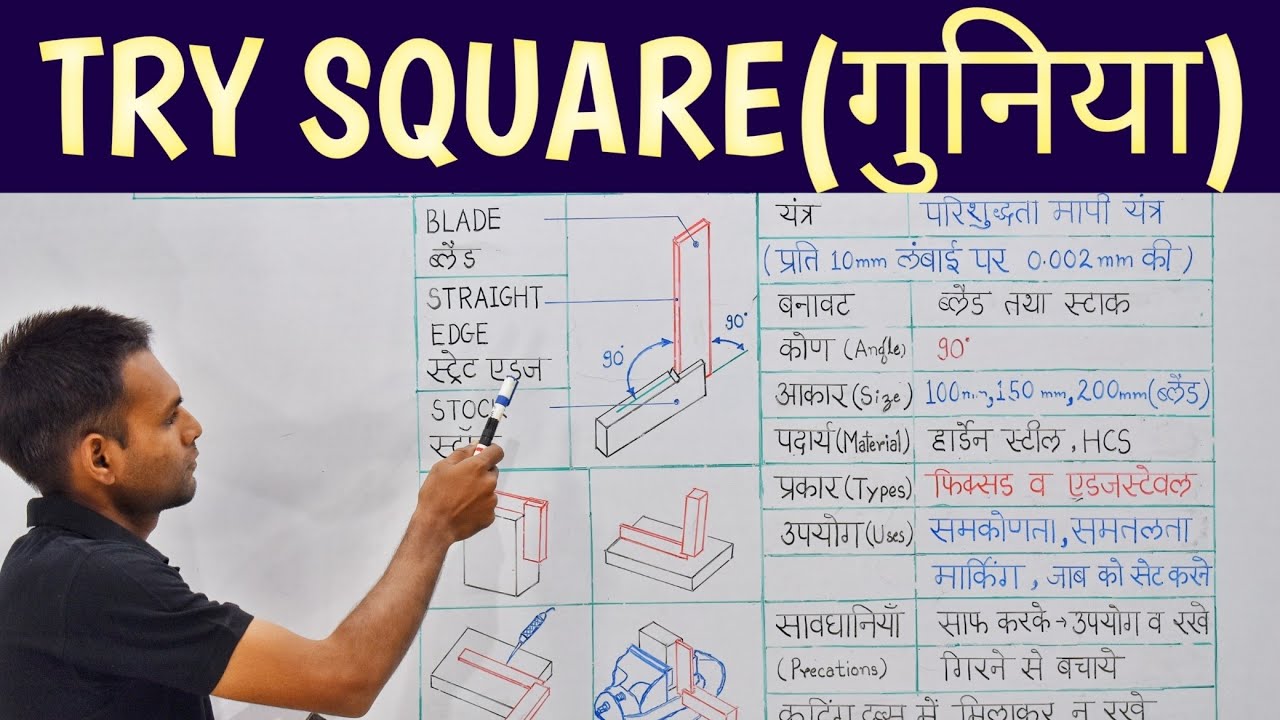 TRY SQUARE(गुनिया)
BLADE
ब्लैड
STRAIGHT
EDGE
स्ट्रेट एडज
90°
90°
यंत्र परिशुद्धता मापी यंत्र
(प्रति 10mm लंबाई पर 0.002mm की)
बनावट ब्लैड तथा स्टाक
कोण (Angle) 90°
आकार (Size) 100mm, 150 mm, 200mm (ब्लैड)
पदार्थ (Material) हार्डेन स्टील, HCS
प्रकार (Types) फिक्सड व एडजस्टेवल
उपयोग (Uses) समकोणता, समतलता
मार्किंग, जाब को सेट करने
सावधानियाँ साफ करके → उपयोग व रखे
(Precations) गिरने से बचाये
में मिलाकर न रखे